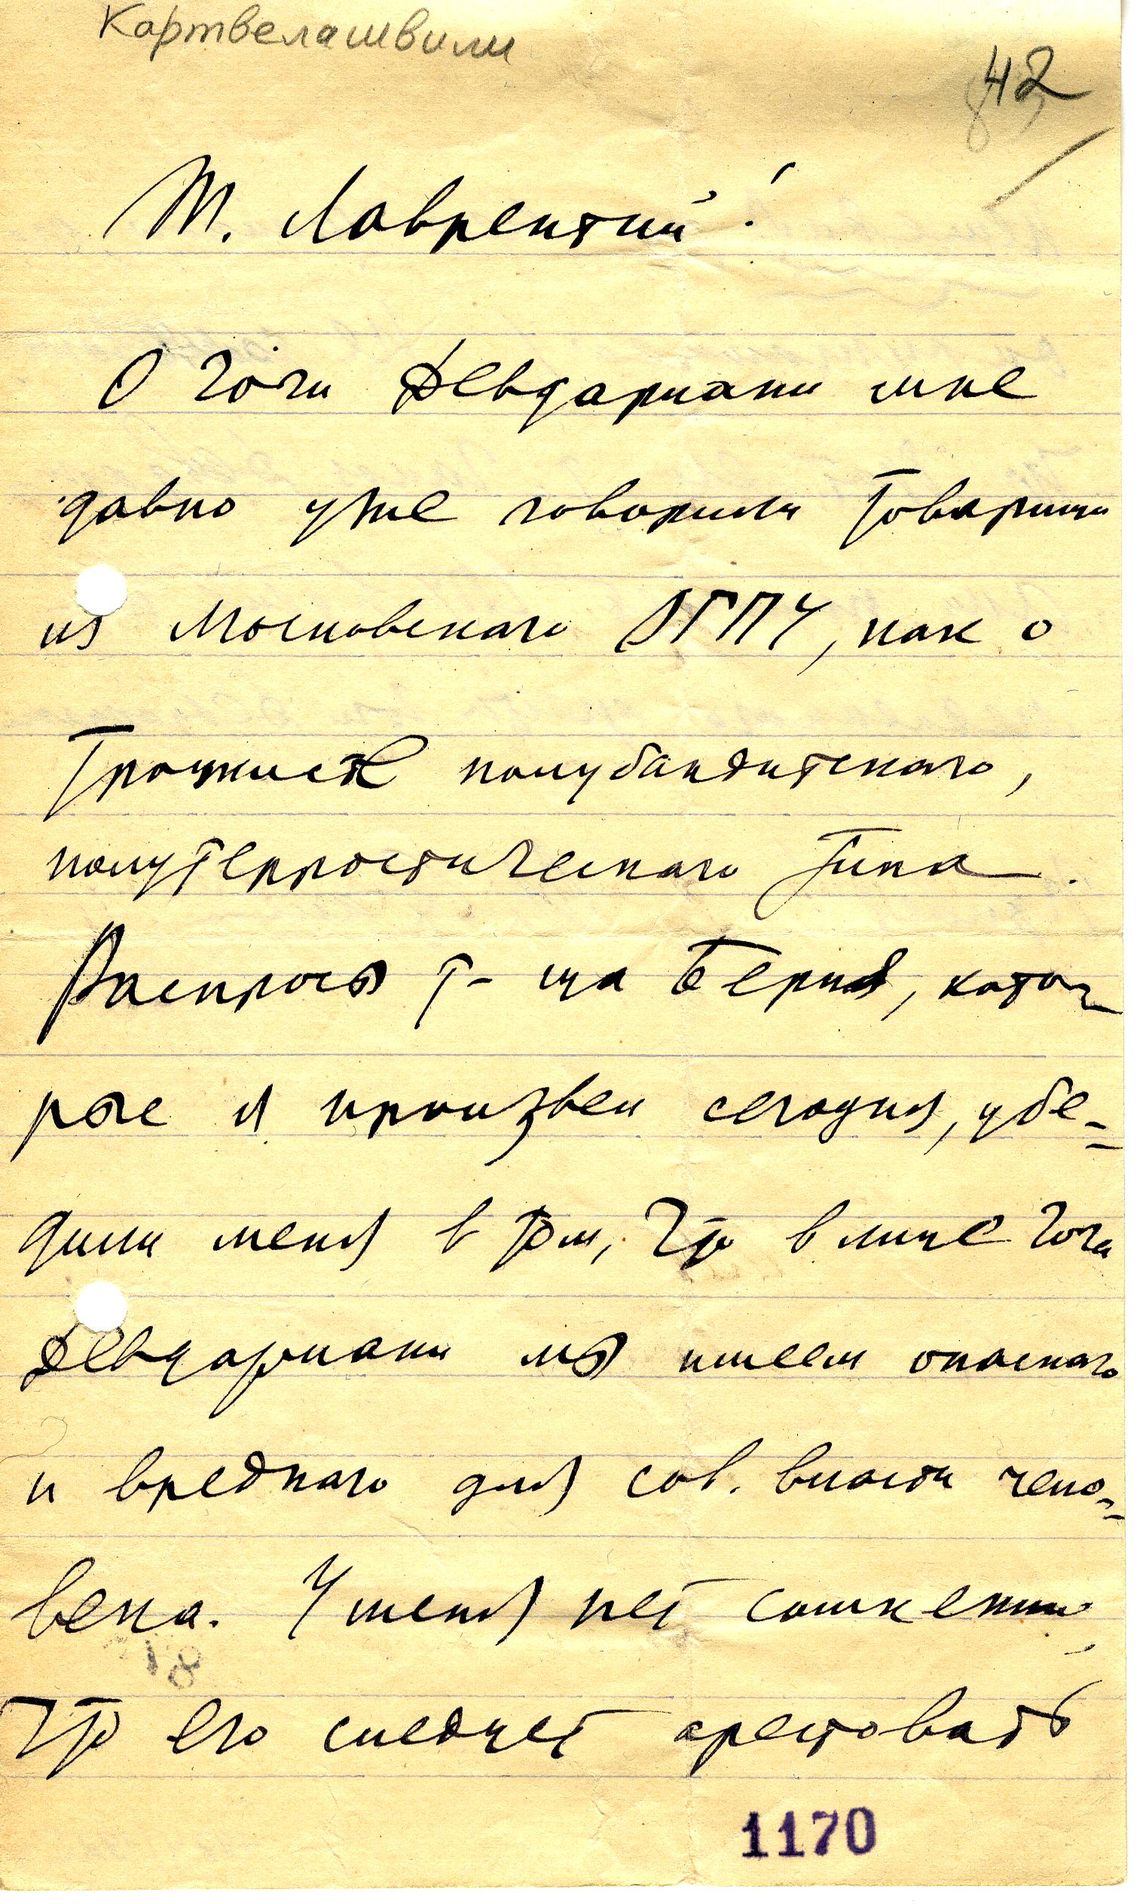 Картвелашвили
42
Т. Лаврентий!
О Гоги Девдариани мне
давно уже говорили товарищи
из Московского ОГПУ, как о
троцкисте полубандитского,
полутерростического типа.
Распросы т-ща Берия, кото-
рые я произвел сегодня, убе-
дили меня в том, что в лице Гоги
Девдариани мы имеем опасного
и вредного для сов. власти чело-
века. У меня нет сомнений,
что его следует арестовать
1170